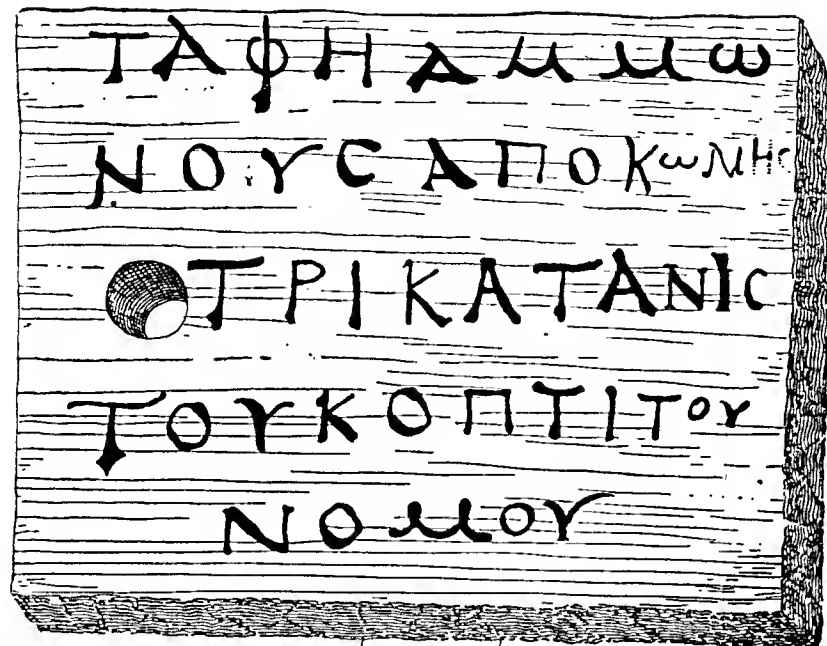 ΤΑΦΗΑΜΜω
ΝΟΥϹΑΠΟΚωΜΗϹ
ΤΡΙΚΑΤΑΝΙϹ
ΤΟΥΚΟΠΤΙΤΟΥ
ΝΟΜΟΥ